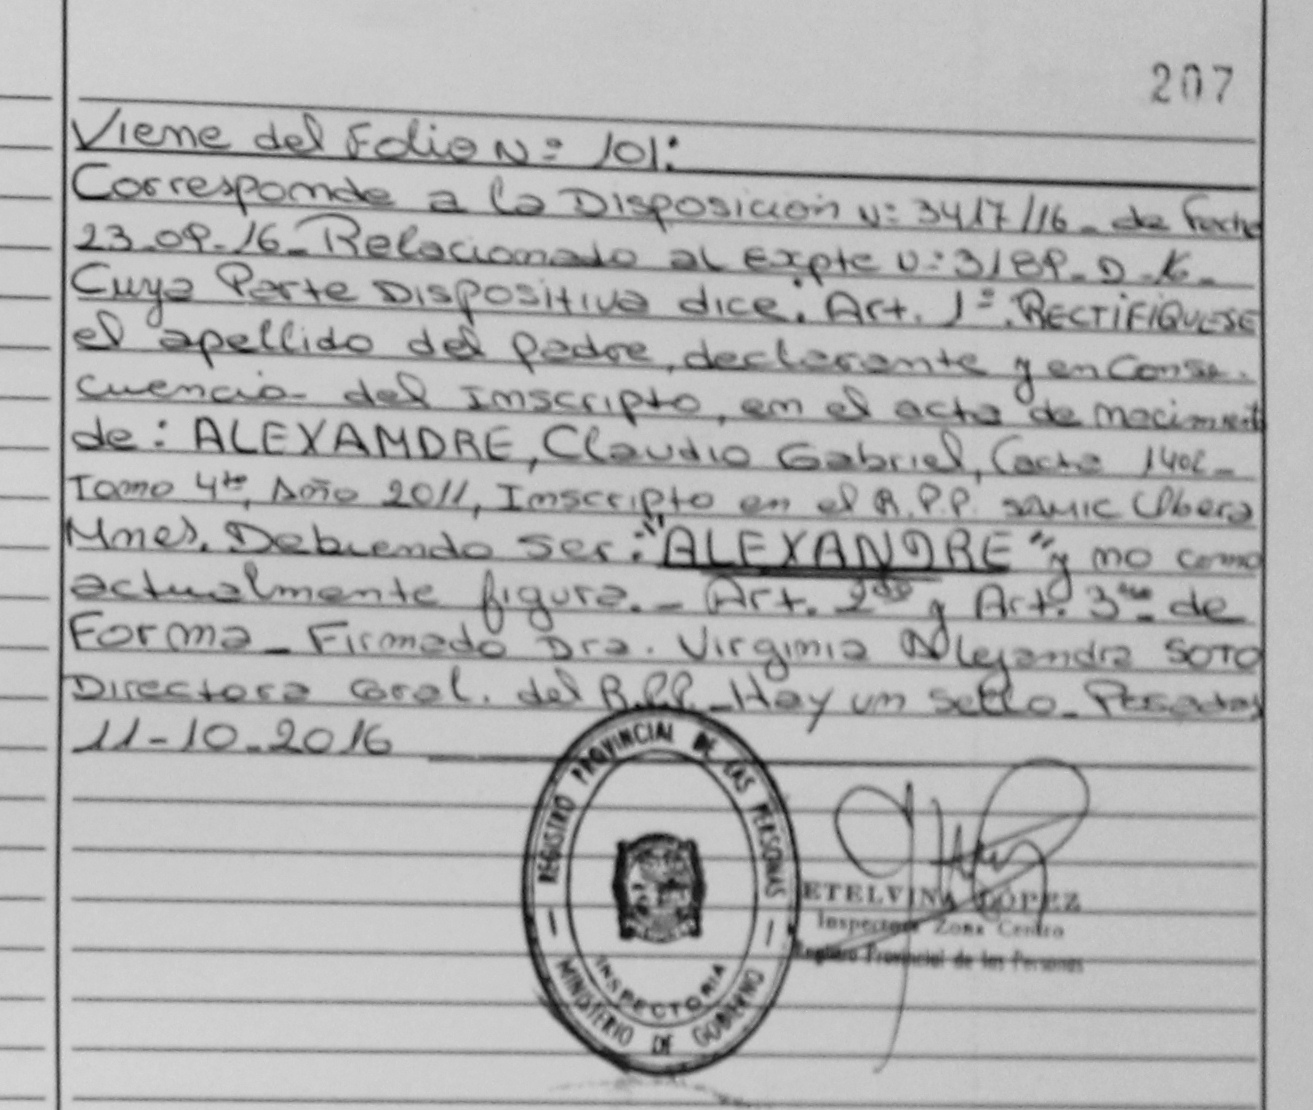 207
Viene del Folio Nº 101:
Corresponde a la Disposición Nº 3417/16 - de fecha
23-09-16 - Relacionado al Expte Nº 3189-D-K-
Cuya Parte Dispositiva dice: Art. 1º. RECTIFIQUESE
el apellido del padre, declarante y en Conse-
cuencia del Inscripto, en el acta de nacimient
de: ALEXAMDRE, Claudio Gabriel, (acta 1402-
Tomo 4to, Año 2011, Inscripto en el R.P.P. SAMIC Obera
Mnes. Debiendo ser: "ALEXANDRE" y no como
actualmente figura.- Art. 2do y Art. 3ro de
Forma - Firmado Dra. Virginia Alejandra SOTO
Directora Gral. del R.P.P. - Hay un sello - Posadas
11-10-2016
REGISTRO PROVINCIAL DE LAS PERSONAS
INSPECTORIA
MINISTERIO DE GOBIERNO
ETELVINA LOPEZ
Inspectora Zona Centro
Registro Provincial de las Personas